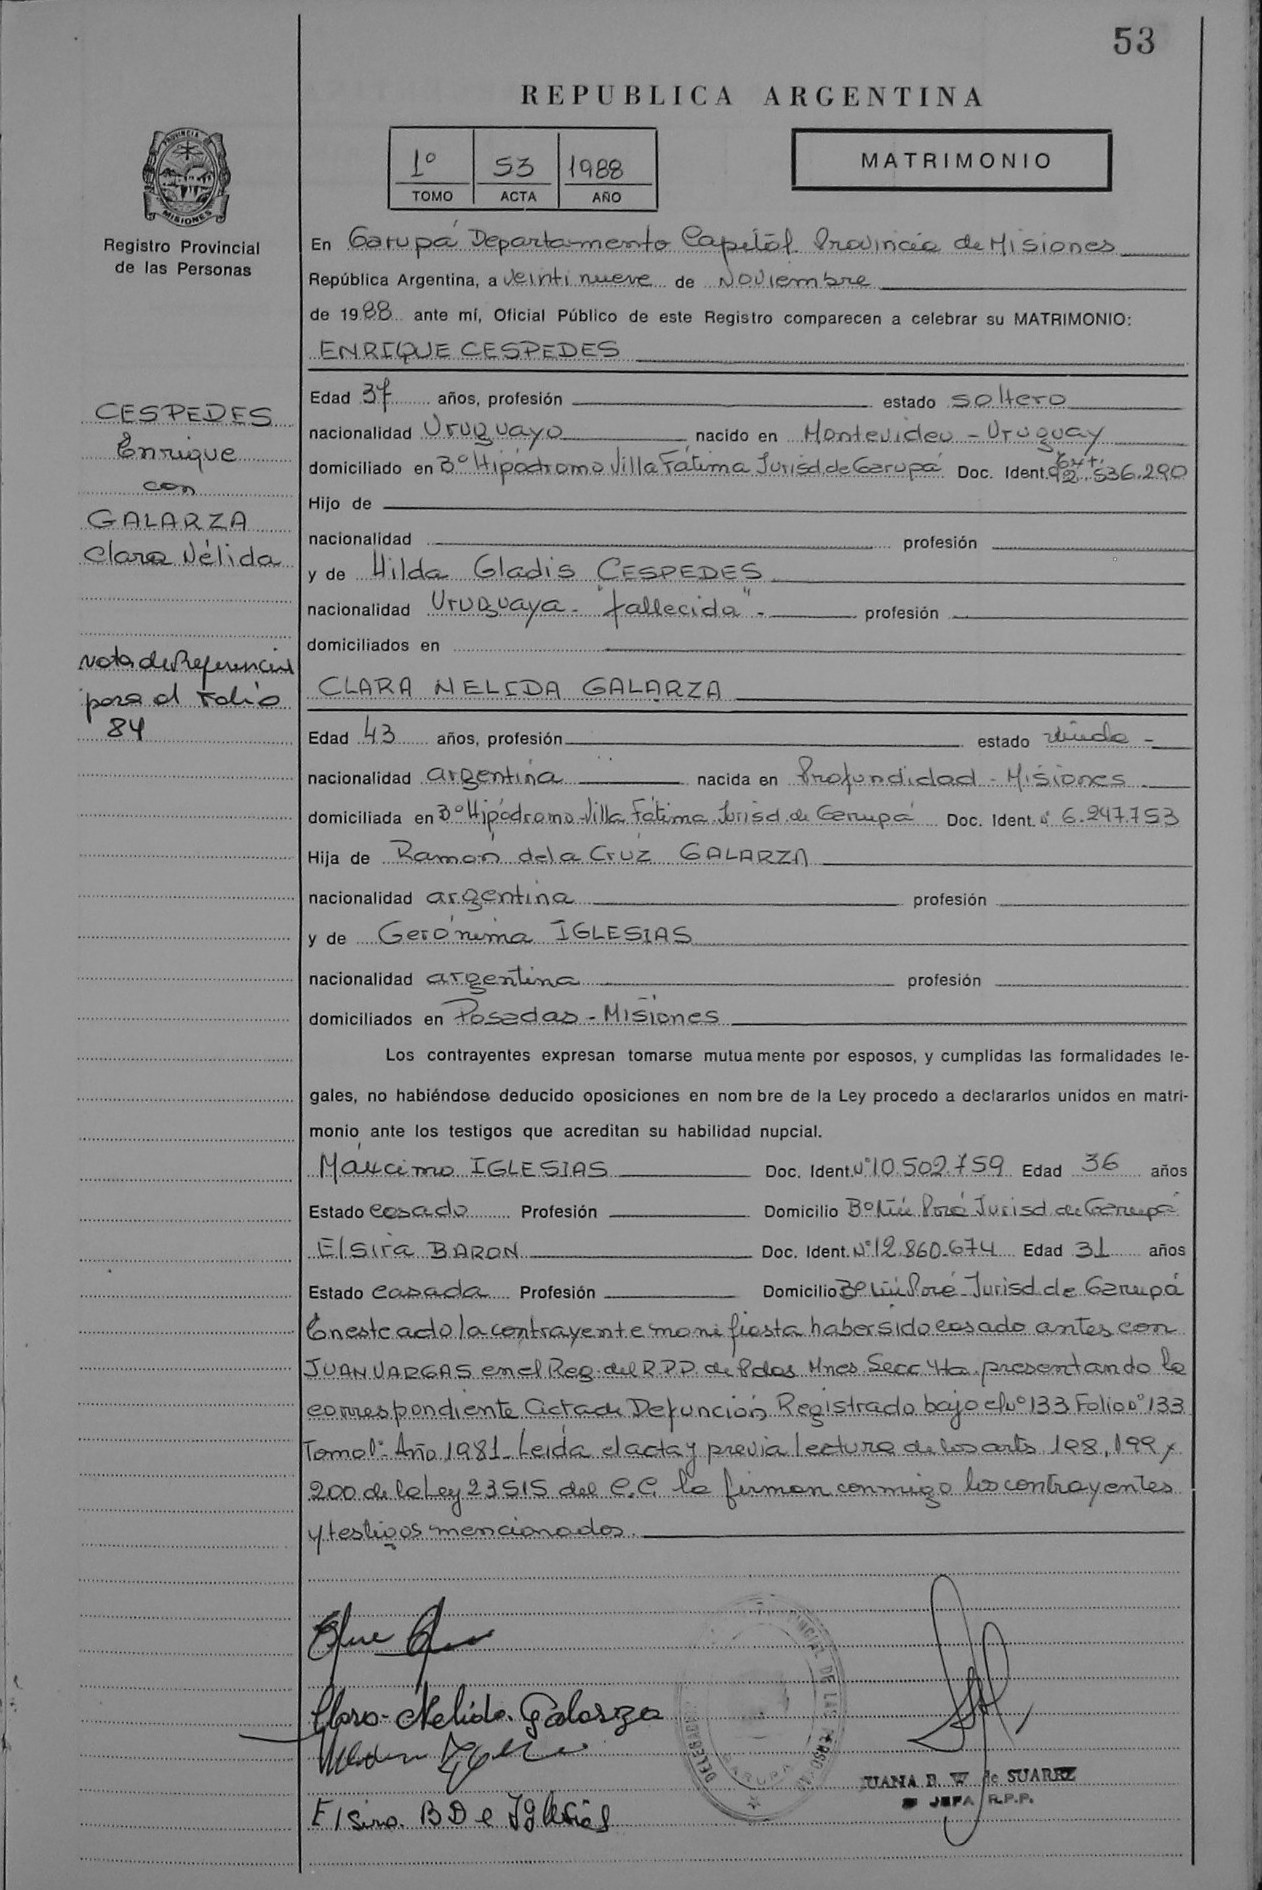 53
REPUBLICA ARGENTINA
1º 53 1988
TOMO ACTA AÑO
MATRIMONIO
PROVINCIA DE
MISIONES
Registro Provincial
de las Personas
En Garupá Departamento Capital Provincia de Misiones
República Argentina, a veintinueve de Noviembre
de 1988 ante mí, Oficial Público de este Registro comparecen a celebrar su MATRIMONIO:
ENRIQUE CESPEDES
Edad 37 años, profesión estado soltero
nacionalidad Uruguayo nacido en Montevideo - Uruguay
domiciliado en Bº Hipódromo Villa Fátima Jurisd. de Garupá Doc. Ident. 92.536.290
Hijo de
nacionalidad profesión
y de Hilda Gladis CESPEDES
nacionalidad Uruguaya - "fallecida" - profesión
domiciliados en
CLARA NELIDA GALARZA
Edad 43 años, profesión estado viuda -
nacionalidad argentina nacida en Profundidad - Misiones
domiciliada en Bº Hipódromo Villa Fátima Jurisd. de Garupá Doc. Ident. nº 6.247.753
Hija de Ramón de la Cruz GALARZA
nacionalidad argentina profesión
y de Gerónima IGLESIAS
nacionalidad argentina profesión
domiciliados en Posadas - Misiones
Los contrayentes expresan tomarse mutuamente por esposos, y cumplidas las formalidades le-
gales, no habiéndose deducido oposiciones en nombre de la Ley procedo a declararlos unidos en matri-
monio ante los testigos que acreditan su habilidad nupcial.
Máxcimo IGLESIAS Doc. Ident. Nº 10.502.759 Edad 36 años
Estado casado Profesión Domicilio Bº Ñú Porá Jurisd. de Garupá
Elsira BARON Doc. Ident. Nº 12.860.674 Edad 31 años
Estado casada Profesión Domicilio Bº Ñú Porá - Jurisd. de Garupá
En este acto la contrayente manifiesta haber sido casado antes con
JUAN VARGAS en el Reg. del R.P.P. de Pdas Mnes Secc 4ta. presentando la
correspondiente Acta de Defunción Registrado bajo el Nº 133 Folio nº 133
Tomo 1º - Año 1981 - Leída el acta y previa lectura de los arts 198, 199 y
200 de la Ley 23515 del C.C. la firman conmigo los contrayentes
y testigos mencionados.
CESPEDES
Enrique
con
GALARZA
Clara Nélida
Nota de Referencia
pasa al Folio
84
Clara Nelida Galarza
Elsira B D e Iglesias
DELEGACION
GARUPA
JUANA E. W de SUAREZ
JEFA R.P.P.